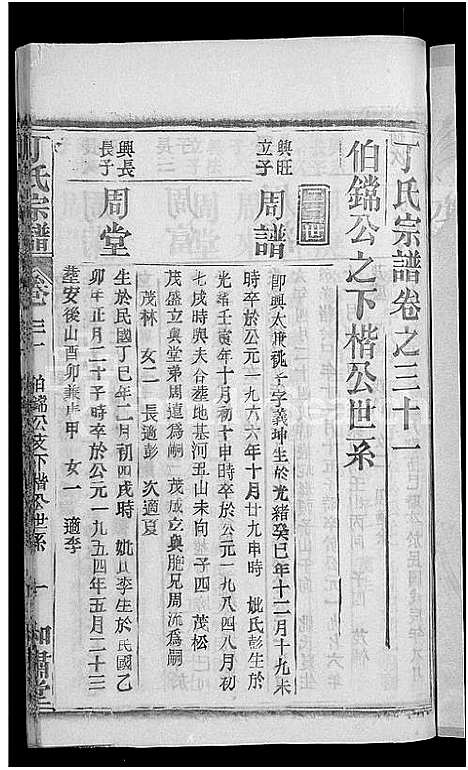 丁氏宗譜卷之三十一
伯鏴公之下楷公世系
興旺
立子
周譜
即興太康桃子字義坤生於光緒癸巳年十二月十九未
時卒於公元一九六六年十月廿九申時 妣氏彭生於
光緒壬寅年十月初十申時卒於公元一九八四八月初
七戌時與夫合葬地基河丑山未向 子四 茂松
茂盛立與堂弟周道爲嗣 茂成立與胞兄周流爲嗣
茂林 女二 長適彭 次適夏
興長
長子
周堂
生於民國丁巳年二月初四戌時 妣氏李生於民國乙
卯年正月二十子時卒於公元一九五四年五月二十三
葬安後山酉卯兼庚甲 女一 適李
丁氏宗譜 卷三十一 伯鏴公支下楷公世系 一